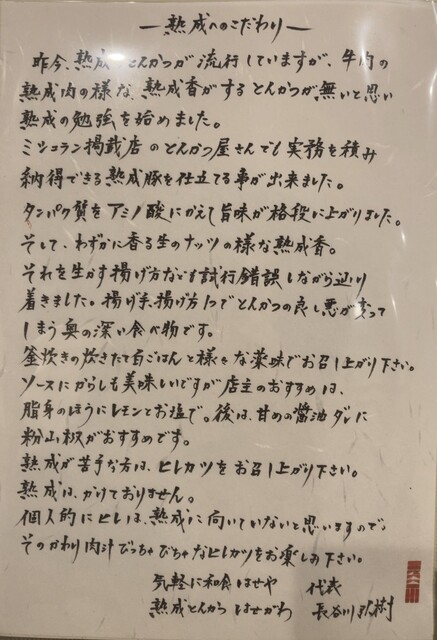 ー熟成へのこだわりー
昨今、熟成とんかつが流行していますが、牛肉の
熟成肉の様な、熟成香がするとんかつが無いと思い
熟成の勉強を始めました。
ミシュラン掲載店のとんかつ屋さんでも実務を積み
納得できる熟成豚を仕立てる事が出来ました。
タンパク質をアミノ酸にかえて旨味が格段に上がりました。
そして、わずかに香る生のナッツの様な熟成香。
それを生かす揚げ方ないも試行錯誤しながら辿り
着きました。揚げ手、揚げ方1つでとんかつの良し悪が変って
しまう奥の深い食べ物です。
釜炊きの炊きたて白ごはんと様々な薬味でお召し上がり下さい。
ソースにからしも美味しいですが店主のおすすめは、
脂身のほうにレモンとお塩で。後は、甘めの醤油ダレに
粉山椒がおすすめです。
熟成が苦手な方は、ヒレカツをお召し上がり下さい。
熟成は、かけておりません。
個人的にヒレは、熟成に向いていないと思いますので、
そのかわり肉汁びっちゃびちゃなヒレカツをお楽しみ下さい。
気軽に和食はせや 代表
熟成とんかつはせがわ 長谷川弘樹